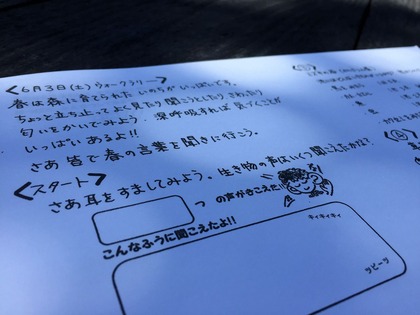 <6月3日(土)ウォークラリー>
春は森に育てられた いのちがいっぱいです。
ちょっと立ち止ってよく見たり聞こうとしたり されたり
匂いをかいでみよう。深呼吸すれば 気づくことが
いっぱいあるよ!!
さあ皆で春の言葉を聞きに行こう。
<スタート>
さあ耳をすましてみよう。生き物の声はいくつ聞こえたかな?
つ の声がきこえた!!
こんなふうに聞こえたよ!!
キィキィキィ
ツピーツ